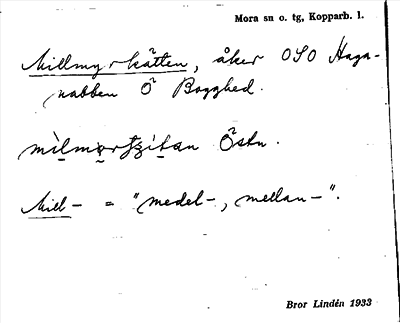 Mora sn o. tg, Kopparb. l.
Millmyrkätten, åker OSO Haga-
nabben Ö Bogghed.
Östn.
Mill- = "medel-, mellan-".
Bror Lindén 1933